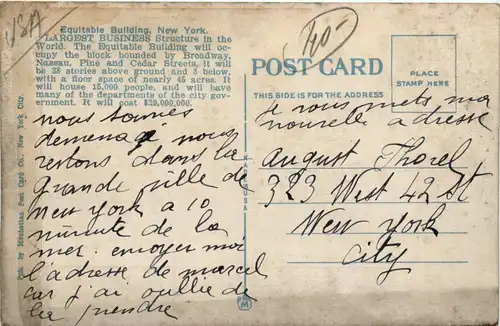 USA
Equitable Building, New York.
LARGEST BUSINESS Structure in the
World. The Equitable Building will oc-
cupy the block bounded by Broadway,
Nassau, Pine and Cedar Streets, it will
be 38 stories above ground and 3 below,
with a floor space of nearly 45 acres. It
will house 15,000 people, and will have
many of the departments of the city gov-
ernment. It will cost $29,000,000.
nous sommes
demenage nous
restons dans la
grande ville de
New York a 10
minute de la
mer envoyer moi
l'adresse de marcel
car j'ai oullie de
la prendre
Pub. by Manhattan Post Card Co., New York City.
40-
POST CARD
THIS SIDE IS FOR THE ADDRESS
PLACE
STAMP HERE
Je vous mets ma
nouvelle adresse
August Thorel
323 West 42 St
New york
City
M